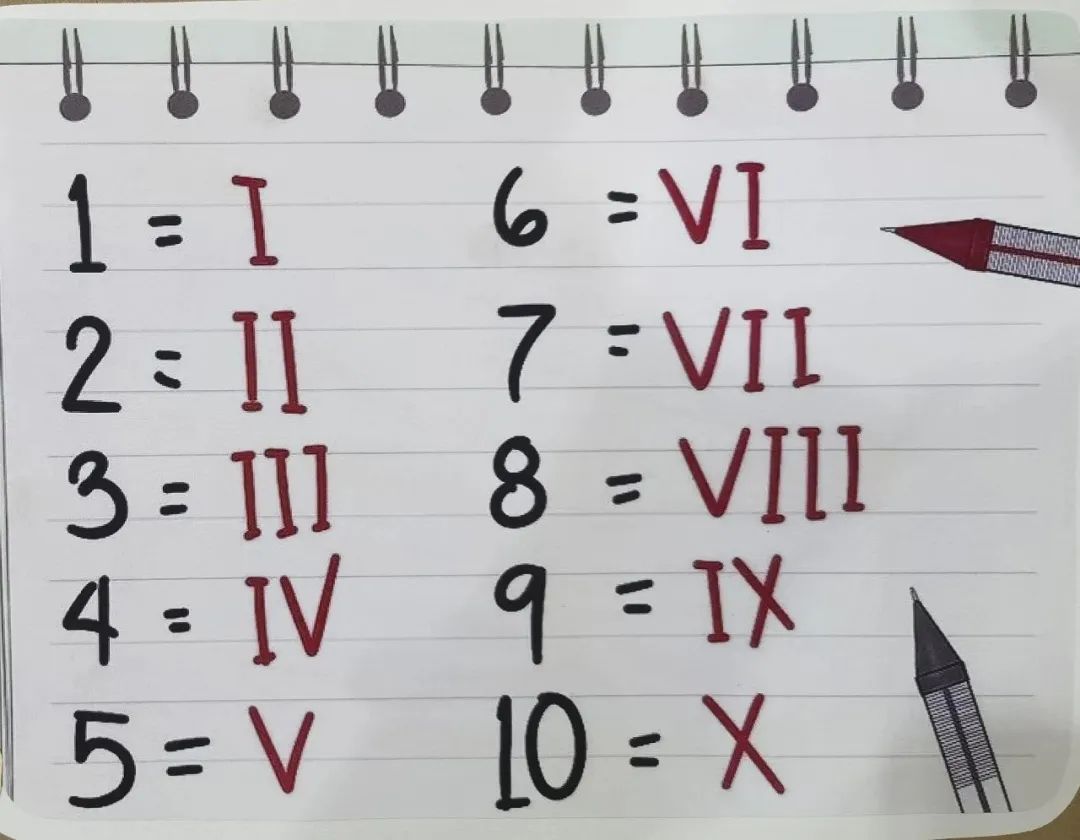 1 = I
2 = II
3 = III
4 = IV
5 = V
6 = VI
7 = VII
8 = VIII
9 = IX
10 = X